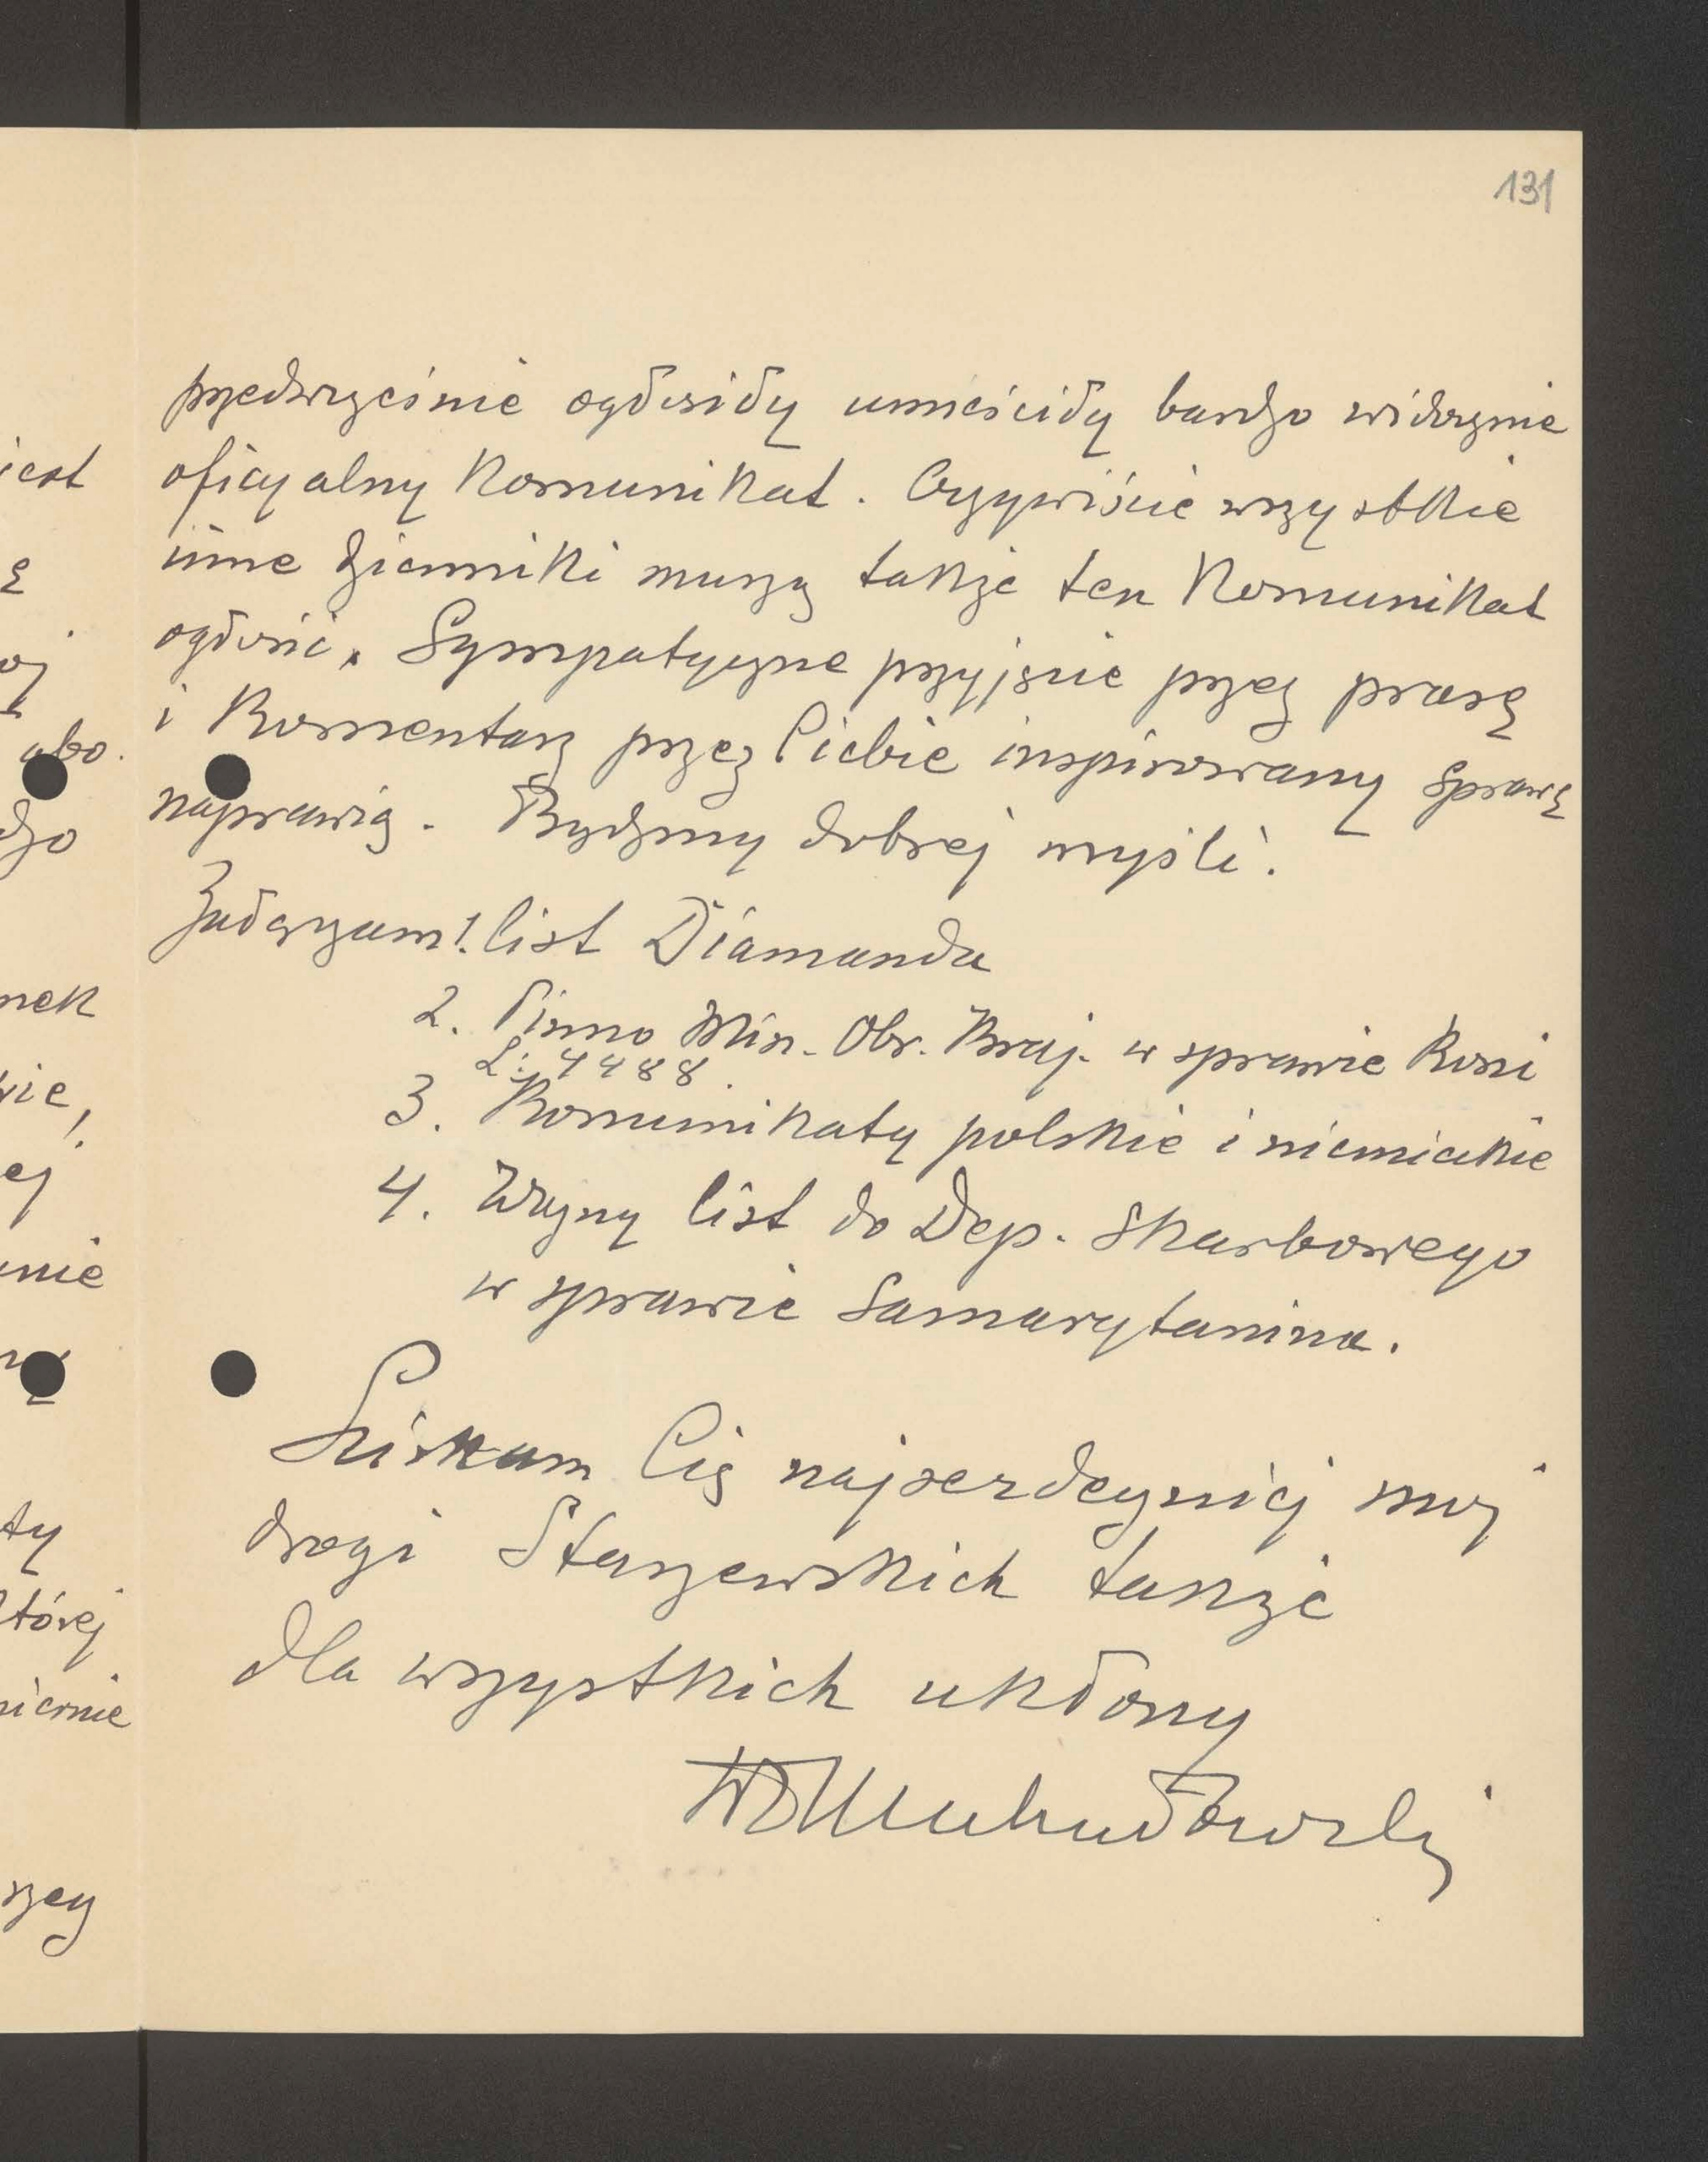 131
przedwcześnie ogłosiły umieściły bardzo widocznie
oficyalny Komunikat. Oczywiście wszystkie
inne dzienniki muszą także ten Komunikat
ogłosić. Sympatyczne przyjęcie przez prasę
i Komentarz przez Ciebie inspirowany sprawę
naprawią. Bądźmy dobrej myśli.
Załączam 1. list Diamanda
2. Pismo Min. Obr. Kraj. w sprawie Koni
L: 4488.
3. Komunikaty polskie i niemieckie
4. Ważny list do Dep. Skarbowego
w sprawie Samarytanina.
Ściskam Cię najserdeczniej mój
drogi Staszewskich także
dla wszystkich ukłony
iest
ę
oj
abo.
dzo
nek
wie,
ej
nie
ty
której
nienie
szcy